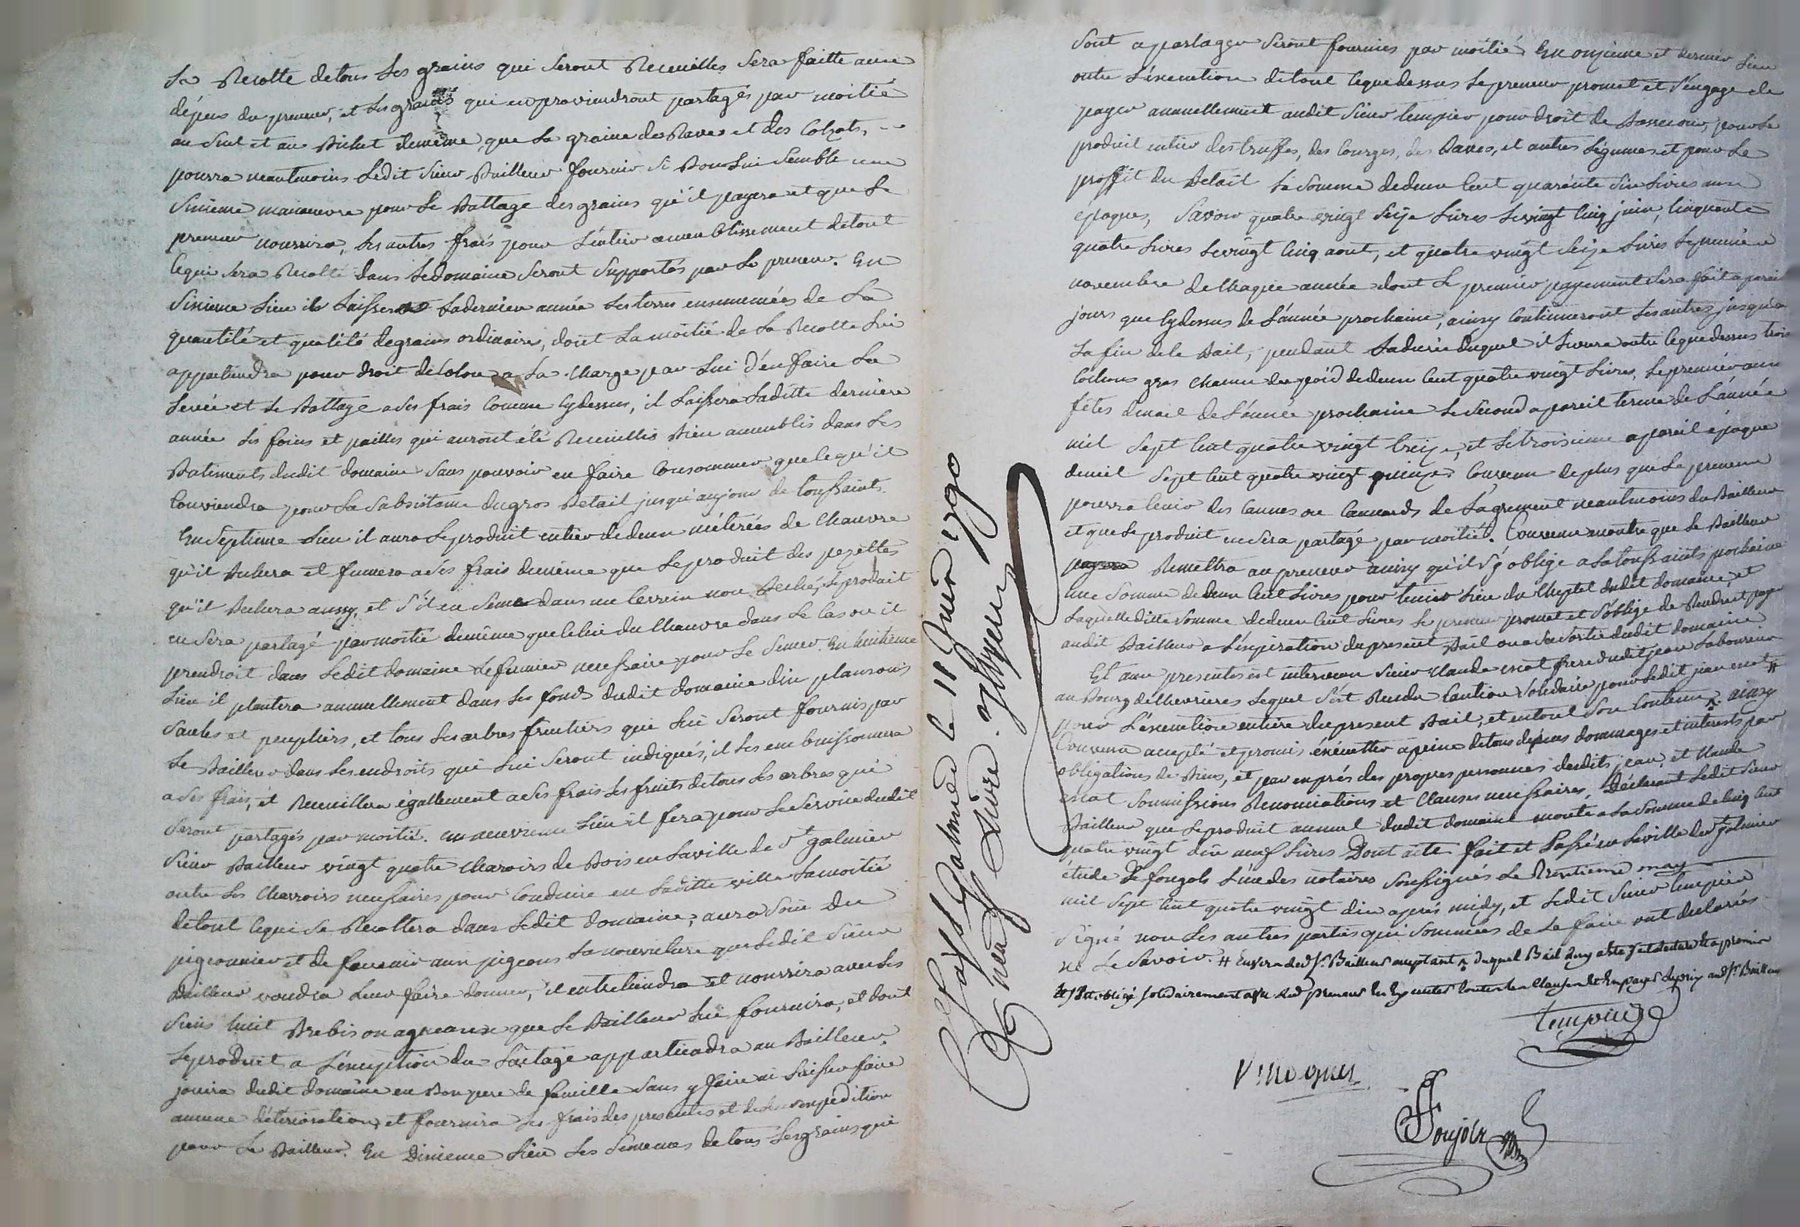 La Recolte de tous les grains qui seront Recueilles sera faitte aux
dépens du preneur, et les grains qui en proviendront partagés par moitié
au Suel et au Bichet de meme que la graine de Raves et des Colzats,
pourra neantmoins ledit Sieur Bailleur fournir si Bon lui semble un
Sixieme manoeuvre pour le Battage des grains qu'il payera et que le
preneur nourrira, les autres frais pour l'entier ameublissement de tout
ce qui sera Recolté dans le domaine seront supportés par le preneur. En
Sixieme lieu il laissera la derniere année les terres ensemencées de la
quantité et qualité de grains ordinaires, dont la moitié de la Recolte lui
appartiendra pour droit de Colon, a la charge par lui d'en faire la
levée et le Battage a ses frais comme cydessus, il laissera laditte derniere
année les foins et pailles qui auront été Recueillis Bien ameublis dans les
Batiments dudit domaine sans pouvoir en faire Consommer que ce qu'il
Conviendra pour la subsistance du gros Betail jusqu'au jour de toussaint.
En Septieme lieu il aura le produit entier de deux méterées de Chanvre
qu'il Bechera et fumera a ses frais de même que le produit des pezettes
qu'il Bechera aussy, et s'il en seme dans un terrein non Beché, le produit
en sera partagé par moitié de même que celui du Chanvre dans le cas ou il
prendroit dans ledit domaine le fumier necessaire pour le semer. En huitieme
lieu il plantera annuellement dans les fonds dudit domaine dix plansons
Saules et peupliers, et tous les arbres fruitiers qui lui seront fournis par
le Bailleur dans les endroits qui lui seront indiqués, il les embuissonnera
a ses frais, et Recueillera égallement a ses frais les fruits de tous les arbres qui
seront partagés par moitié. En neuvieme lieu il fera pour le service dudit
Sieur Bailleur vingt quatre charois de Bois en la ville de St galmier
outre les charrois necessaires pour conduire en laditte ville la moitié
de tout ce qui se Recoltera dans ledit domaine, aura soin du
pigeonnier et de fournir aux pigeons la nourriture que ledit Sieur
Bailleur voudra leur faire donner, il entretiendra et nourrira avec les
siens huit Brebis ou agneaux que le Bailleur lui fournira, et dont
le produit a l'exeption du Laitage appartiendra au Bailleur.
jouira dudit domaine en Bon pere de famille sans y faire ni laisser faire
aucune déterioration, et fournira les frais des presentes et de leur expédition
pour le Bailleur. En Dixieme lieu les semences de tous les grains qui
Controllé a St Galmier le 11 Juin 1790
Livre
sont a partager seront fournies par moitié. En onzieme et dernier lieu
outre l'execution de tout ceque dessus le preneur promet et s'engage de
payer annuellement audit Sieur tempier pour droit de Bassecour, pour le
produit entier des truffes, des Courges, des Raves, et autres légumes et pour le
proffit du Betail la somme de deux Cent quarante six livres aux
époques, savoir quatre vingt seize livres le vingt cinq juin, cinquante
quatre livres le vingt cinq aout, et quatre vingt seize livres le premier
novembre de chaque année dont le premier payement sera fait a pareils
jours que cydessus de l'année prochaine, ainsy continueront les autres jusqu'a
la fin de le Bail, pendant la durée duquel il livrera outre ceque dessus trois
Cochons gras chacun du poid de deux Cent quatre vingt livres, le premier aux
fêtes de noël de l'année prochaine le second a pareil terme de l'année
mil sept cent quatre vingt treize, et le troisieme a pareil époque
de mil sept cent quatre vingt quinze. Convenu de plus que le preneur
pourra tenir des Cannes ou Cannards de l'agrement neantmoins du Bailleur
et que le produit en sera partagé par moitié. Convenu en outre que le Bailleur
Remettra au preneur ainsy qu'il s'y oblige a la toussaints prochaine
une somme de deux Cent livres pour tenir lieu de cheptel dudit domaine, et
laquelle ditte somme de deux Cent livres le preneur promet et s'oblige de Rendre et payer
audit Bailleur a l'expiration du present Bail ou a sa sortie dudit domaine.
Et aux presentes est intervenu Sieur Claude escot frere dudit jean laboureur
au Bourg de Chevrieres lequel s'est Rendu Caution solidaire pour ledit jean escot #
pour l'execution entiere du present Bail, et en tout son contenu, ainsy
Convenu accepté et promis éxécutter a peine de tous dépens dommages et interests par
obligations de Biens, et par exprés des propres personnes desdits jean et Claude
escot soumissions Renonciations et clauses necessaires. Déclarant ledit Sieur
Bailleur que le produit annuel dudit domaine monte a la somme de cinq Cent
quatre vingt dix neuf livres Dont acte fait et Passé en la ville de St galmier
étude De fougols l'un des notaires soussignés Le Trentieme may
mil sept Cent quatre vingt dix aprés midy, et ledit Sieur tempier
signé non les autres parties qui sommées de le faire ont declarés
ne le savoir. # envers ledit Sr. Bailleur acceptant
solidairement avec led preneur
tempier
Vincgner